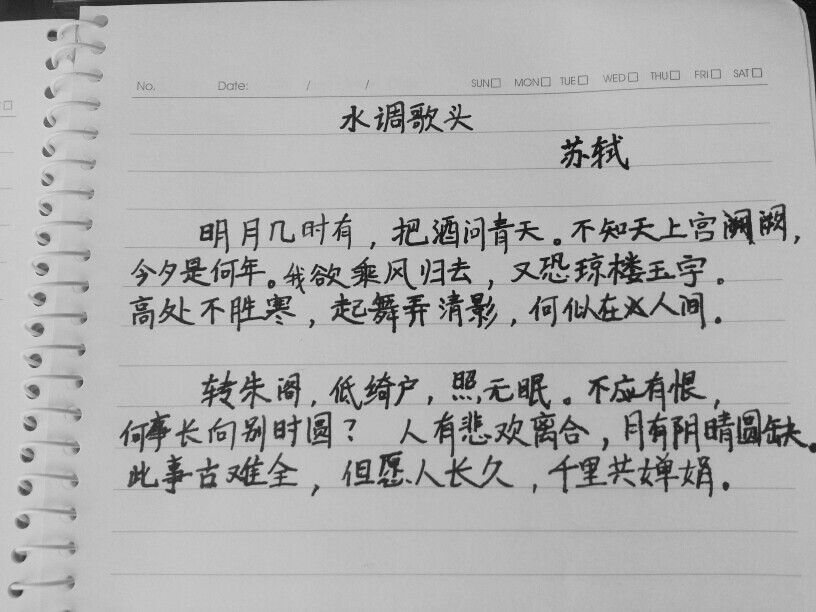 No. Date: / / SUN□ MON□ TUE□ WED□ THU□ FRI□ SAT□
水调歌头
苏轼
明月几时有，把酒问青天。不知天上宫阙，
今夕是何年。我欲乘风归去，又恐琼楼玉宇。
高处不胜寒，起舞弄清影，何似在人间。
转朱阁，低绮户，照无眠。不应有恨，
何事长向别时圆？ 人有悲欢离合，月有阴晴圆缺。
此事古难全，但愿人长久，千里共婵娟。